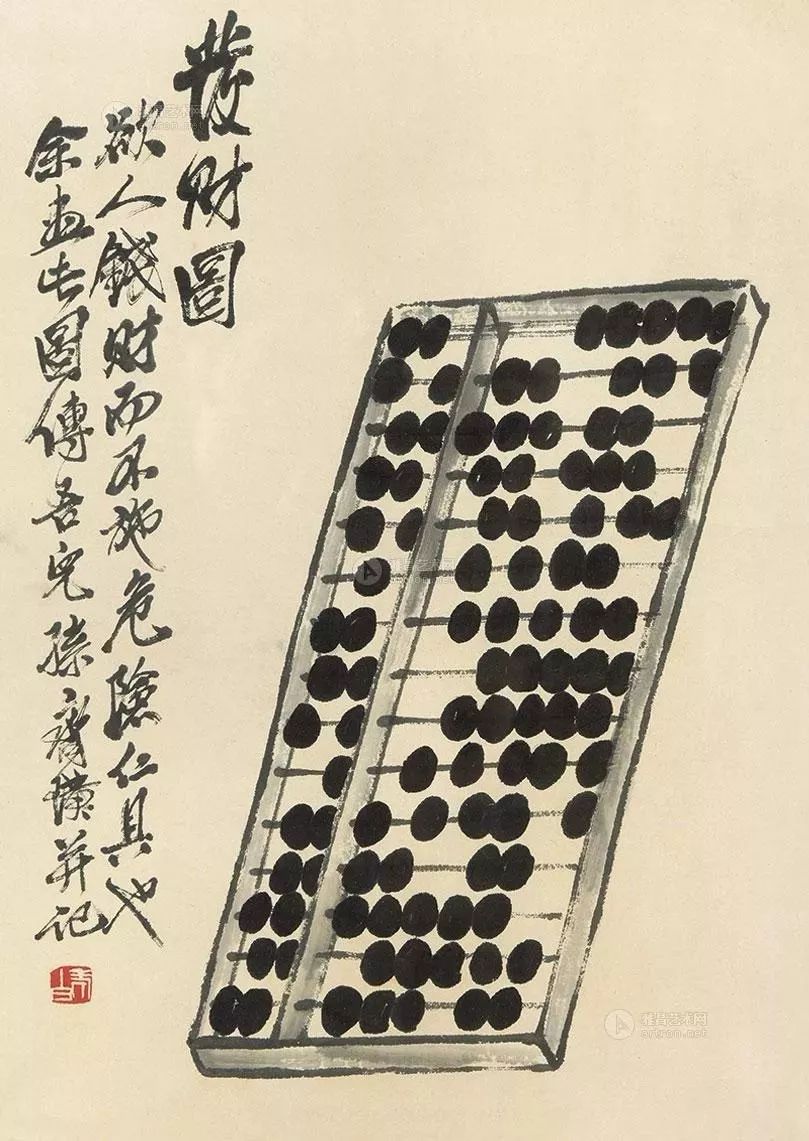 發財圖
欲人錢財而不施危險仁具也
余畫此圖傳吾兒孫齊璜并記
雅昌艺术网
artron.net